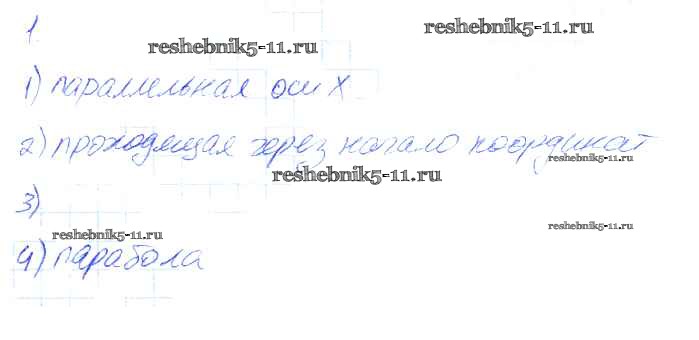 1.
reshebnik5-11.ru
reshebnik5-11.ru
1) параллельная оси X
2) проходящая через начало координат
reshebnik5-11.ru
reshebnik5-11.ru
3)
reshebnik5-11.ru
reshebnik5-11.ru
4) парабола